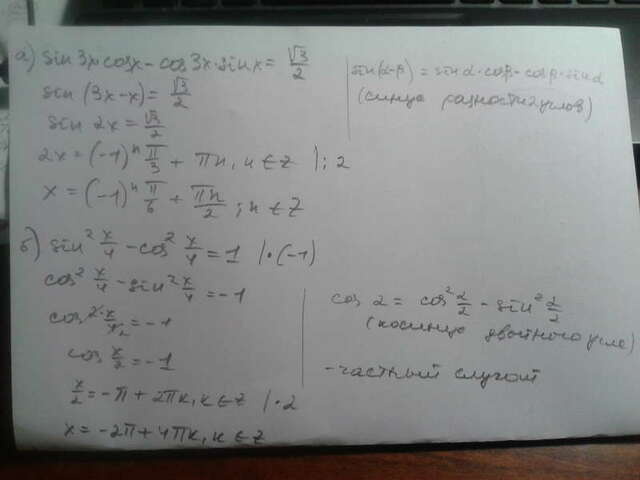 а) sin 3x·cosx - cos 3x·sin x = √3/2
sin (3x-x) = √3/2
sin 2x = √3/2
2x = (-1)ⁿ π/3 + πn, n ∈ Z |:2
x = (-1)ⁿ π/6 + πn/2 ; n ∈ Z
sin(α-β) = sinα·cosβ - cosβ·sinα
(синус разности 2 углов)
б) sin² x/4 - cos² x/4 = 1 |·(-1)
cos² x/4 - sin² x/4 = -1
cos 2·x/4₂ = -1
cos x/2 = -1
x/2 = -π + 2πk, k ∈ Z |·2
x = -2π + 4πk, k ∈ Z
cos α = cos² α/2 - sin² α/2
(косинус двойного угла)
- частный случай